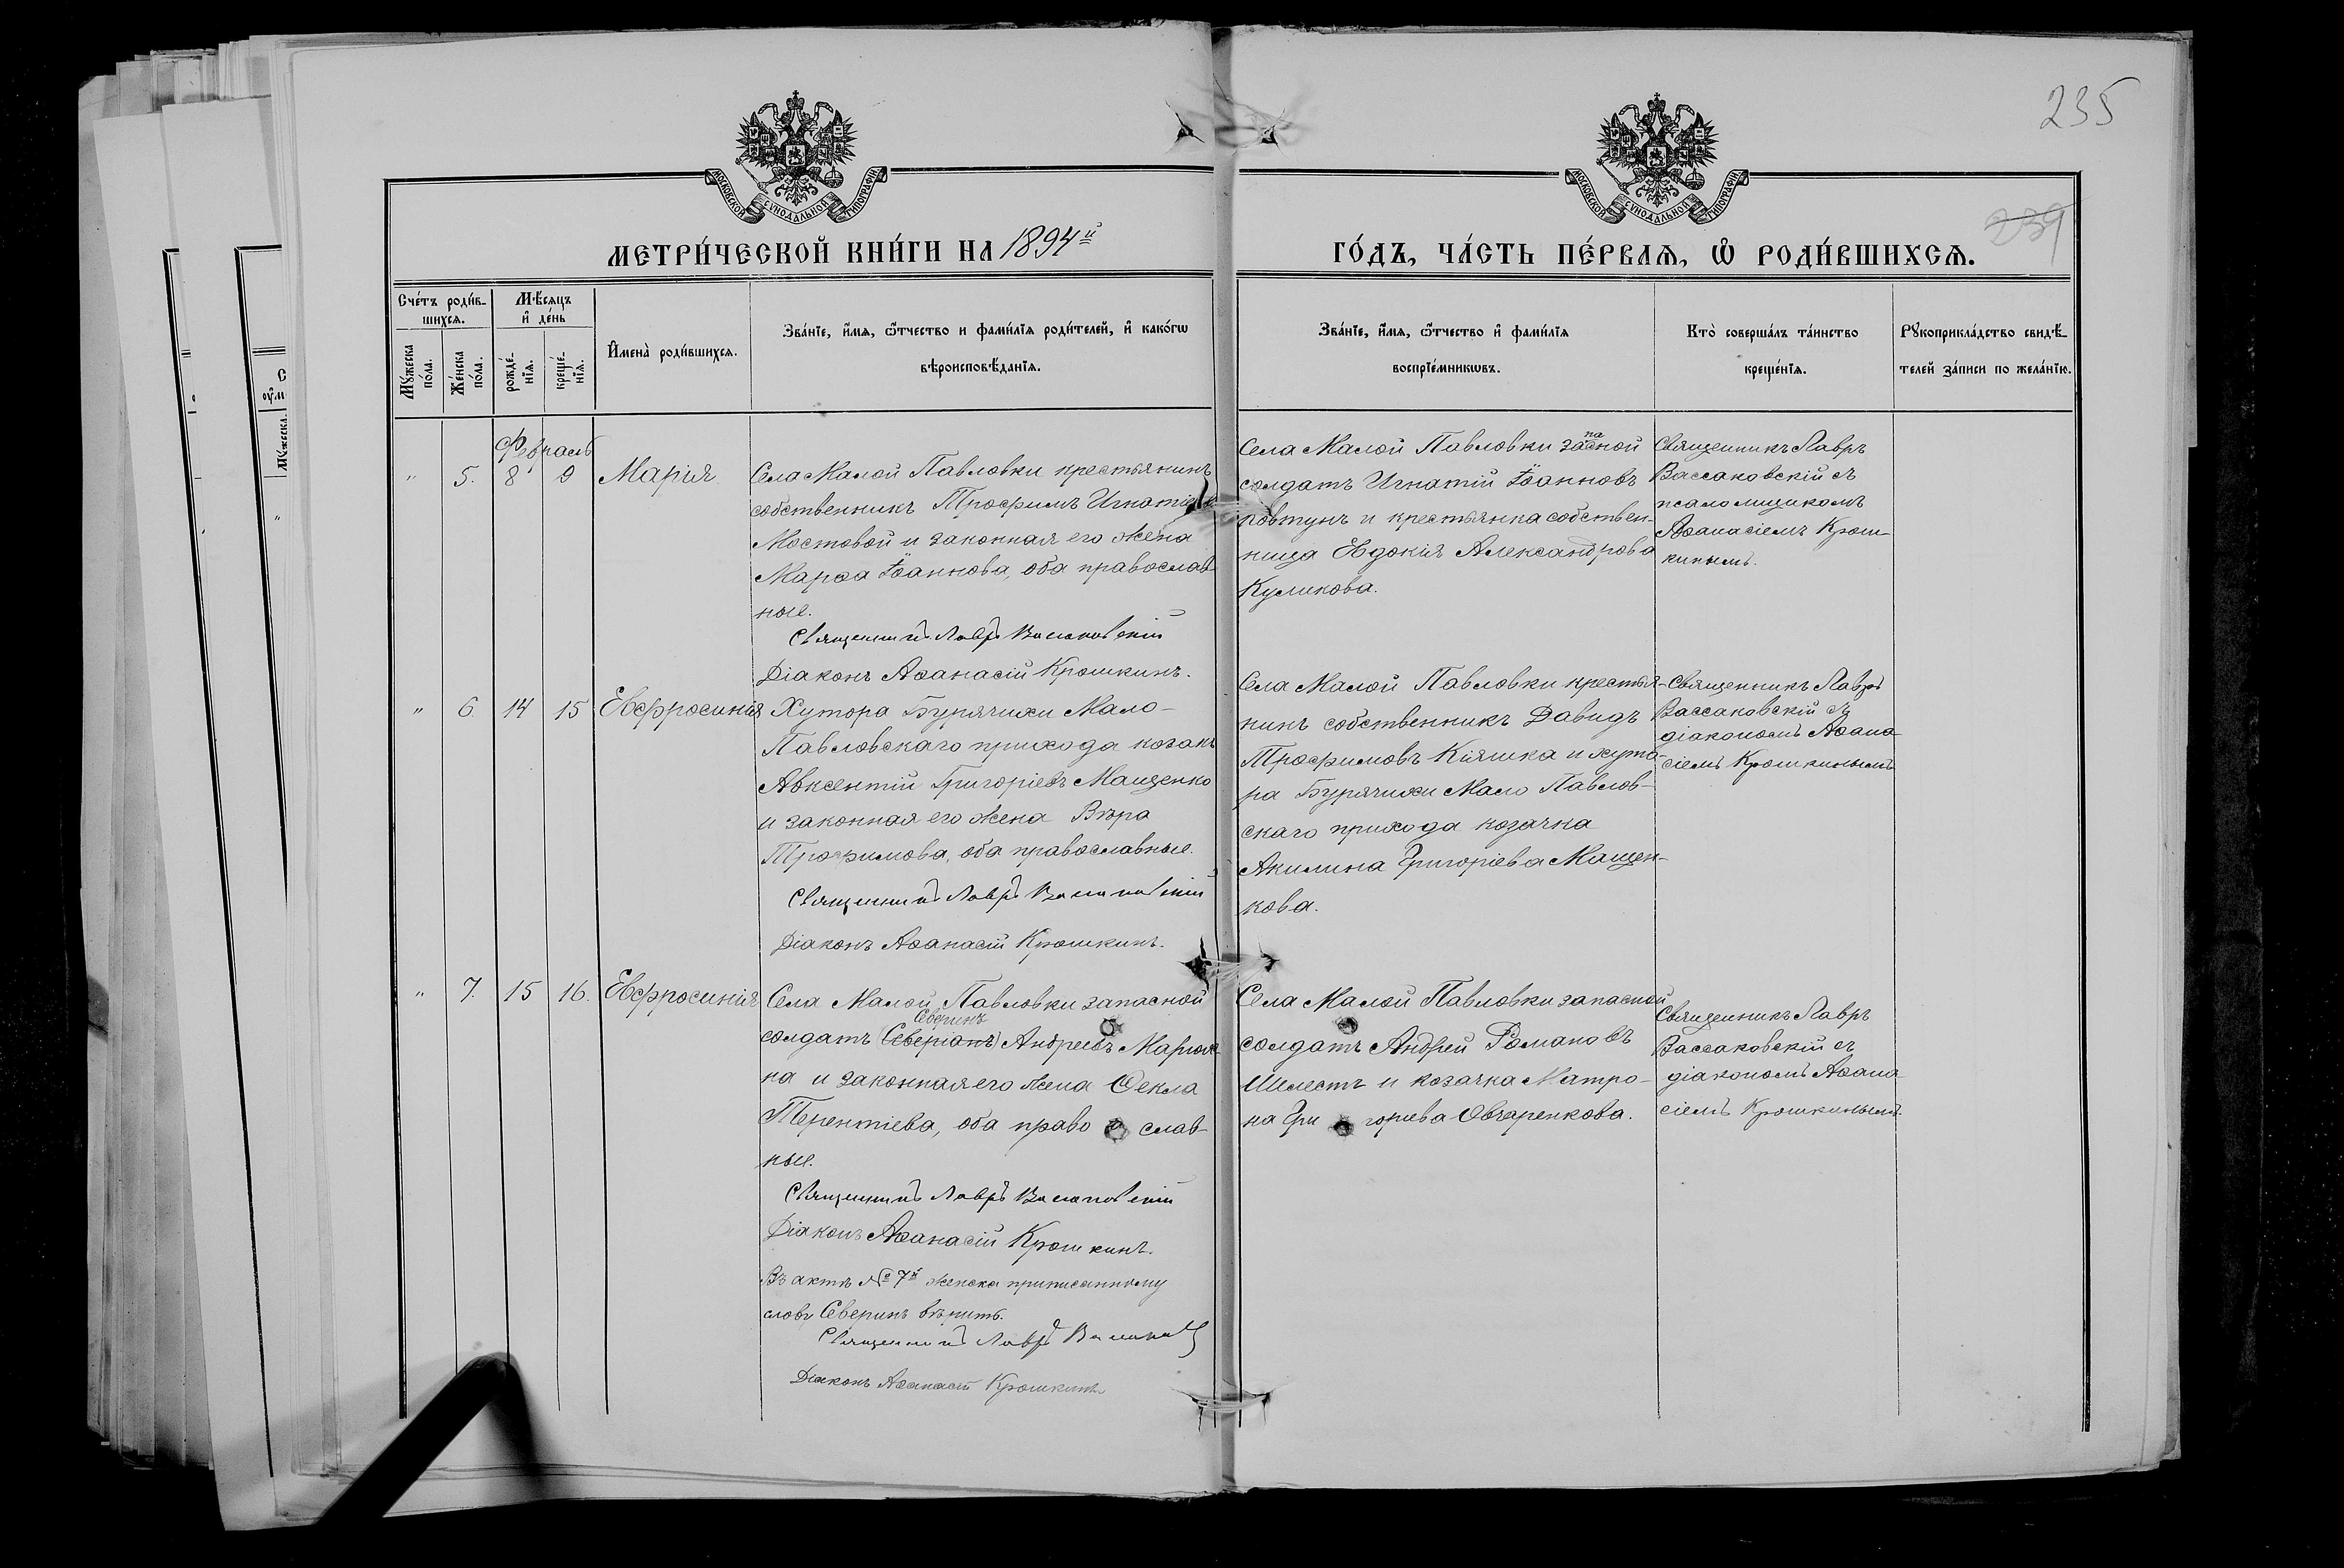 235
МОСКОВСКОЙ СѴНОДАЛЬНОЙ ТИПОГРАФІИ
МОСКОВСКОЙ СѴНОДАЛЬНОЙ ТИПОГРАФІИ
239
МЕТРИ́ЧЕСКОЙ КНИ́ГИ НА 1894й
ГО́ДЪ, ЧА́СТЬ ПЕ́РВАѦ, Ѡ҆ РОДИ́ВШИХСѦ.
Сче́тъ роди́в-
шихсѧ.
Мꙋ́жеска
по́ла.
Же́нска
по́ла.
Мѣ́сѧцъ
и҆ де́нь
рожде́-
нїѧ.
креще́-
нїѧ.
И҆мена̀ роди́вшихсѧ.
Зва́нїе, и҆́мѧ, ѻ҆́тчество и фами́лїѧ роди́телей, и҆ како́гѡ
вѣроисповѣ́данїѧ.
Зва́нїе, и҆́мѧ, ѻ҆́тчество и҆ фами́лїѧ
воспрїе́мникѡвъ.
Кто̀ соверша́лъ та́инство
креще́нїѧ.
Рꙋкоприкла́дство свидѣ́-
телей за́писи по жела́нїю.
Февраль
" 5. 8 9 Марія
Села Малой Павловки крестьянинъ
собственникъ Трофимъ Игнатіевъ
Мостовой и законная его жена
Марѳа Іоаннова, оба православ-
ные.
Священникъ Лавръ Вассаковскій
Діаконъ Аѳанасій Крошкинъ.
Села Малой Павловки запасной
солдатъ Игнатій Іоанновъ
Ковтунъ и крестьянка собствен-
ница Евдокія Александрова
Куликова.
Священникъ Лавръ
Вассаковскій съ
псаломщикомъ
Аѳанасіемъ Крош-
кинымъ.
" 6. 14 15 Евфросинія
Хутора Бурячихи Мало-
Павловскаго прихода козакъ
Авксентій Григоріевъ Мащенко
и законная его жена Вѣра
Трофимова, оба православные.
Священникъ Лавръ Вассаковскій
Діаконъ Аѳанасій Крошкинъ.
Села Малой Павловки крестья-
нинъ собственникъ Давидъ
Трофимовъ Кіяшка и хуто-
ра Бурячихи Мало Павлов-
скаго прихода козачка
Акилина Григоріева Мащен-
кова.
Священникъ Лавръ
Вассаковскій съ
діакономъ Аѳана-
сіемъ Крошкинымъ
" 7. 15 16. Евфросинія
Села Малой Павловки запасной
Северинъ
солдатъ (Северіанъ) Андреевъ
на и законная его жена Ѳекла
Терентіева, оба право слав-
ные.
Священникъ Лавръ Вассаковскій
Діаконъ Аѳанасій Крошкинъ.
Въ актѣ № 7й женска приписанному
слову Северинъ вѣрить.
Священникъ Лавръ
Діаконъ Аѳанасій Крошкинъ
Села Малой Павловки запасной
солдатъ Андрей Романовъ
Шелестъ и козачка Матро-
на Гри горіева Овчаренкова.
Священникъ Лавръ
Вассаковскій съ
діакономъ Аѳана-
сіемъ Крошкинымъ.